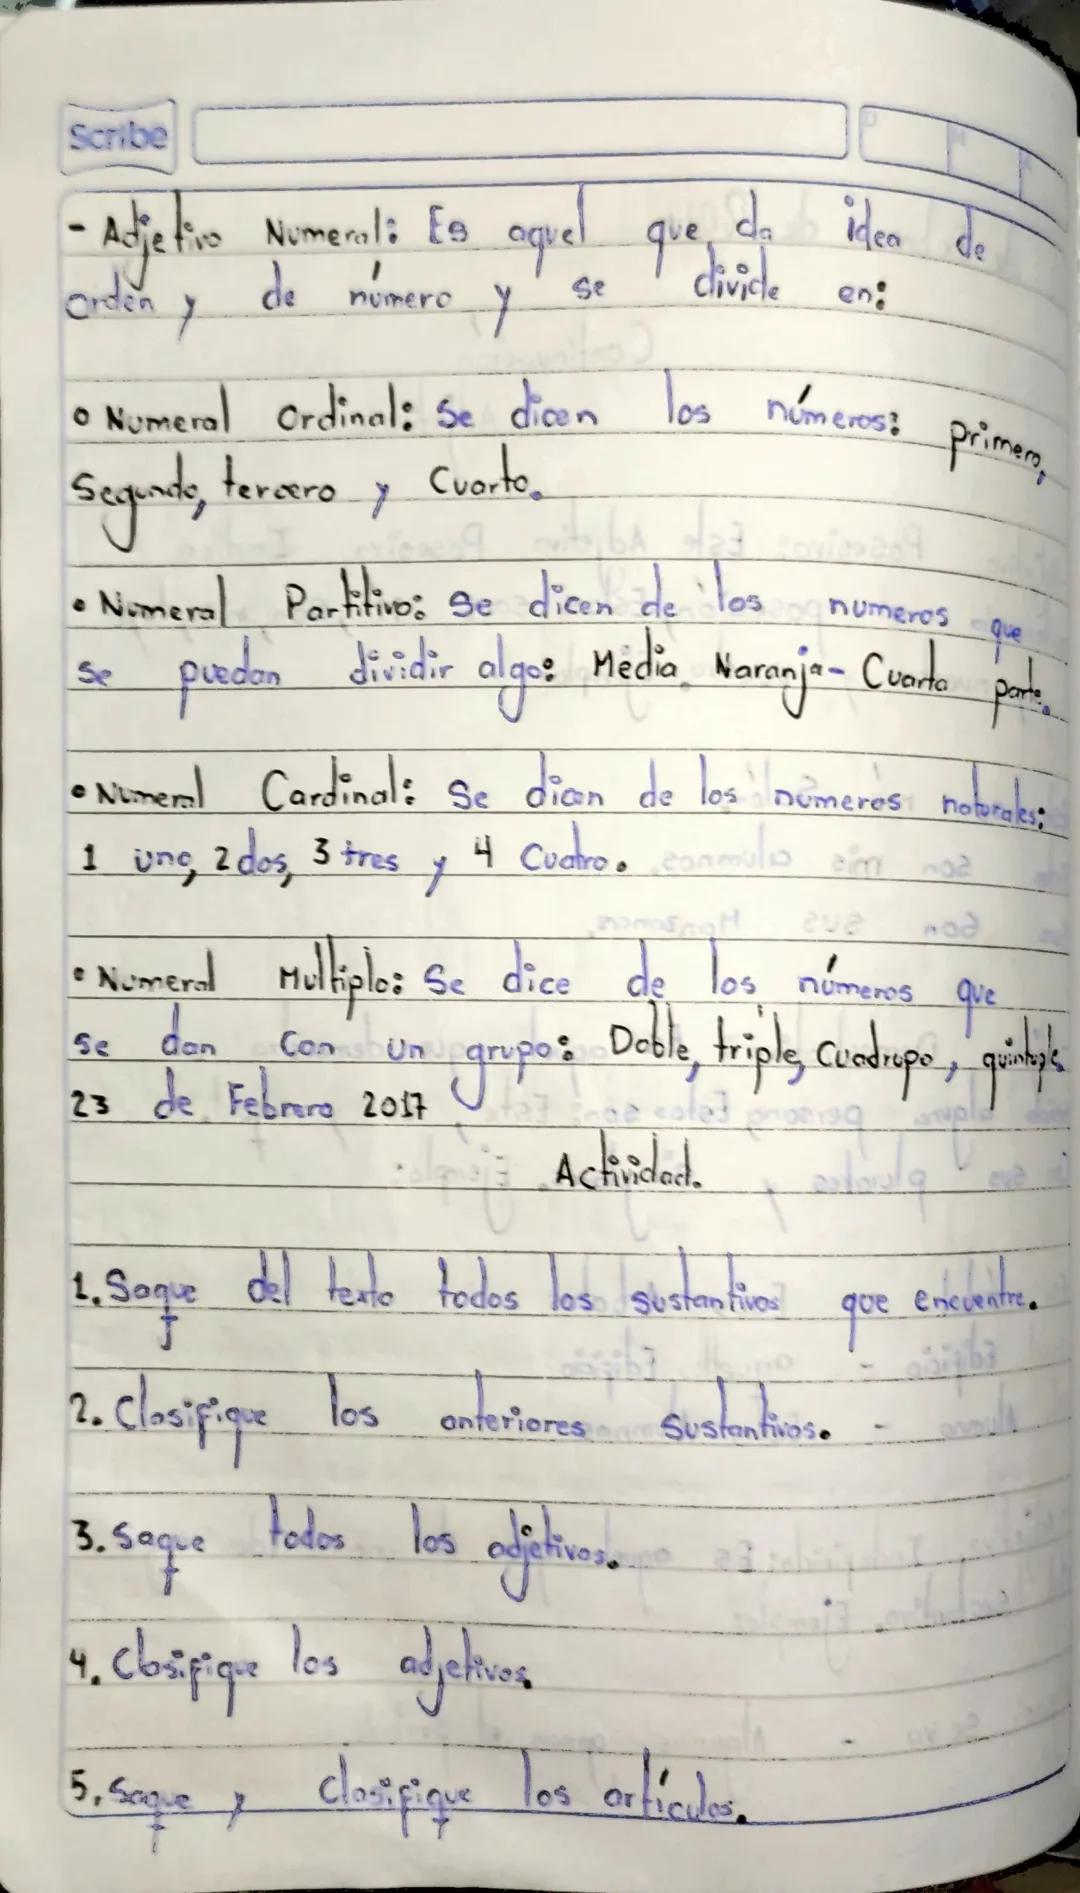 Scribe
- Adjetivo Numeral: Es aquel que da idea de
orden y de número y se divide en:
• Numeral Ordinal: Se dicen los números: primero,
Segundo, tercero y Cuarto.
• Numeral Partitivo: Se dicen de los numeros que
se puedan dividir algo: Media Naranja- Cuarta parte.
• Numeral Cardinal: Se dicen de los números naturales:
1 uno, 2 dos, 3 tres y 4 Cuatro.
• Numeral Multiplo: Se dice de los números que
se dan Con un grupo: Doble, triple, Cuadrupo, quintuple
23 de Febrero 2017
Actividad.
1. Saque del texto todos los sustantivos que encuentre.
2. Clasifique los anteriores Sustantivos.
3. Saque todos los adjetivos.
4. Clasifique los adjetivos.
5. Saque y Clasifique los artículos.